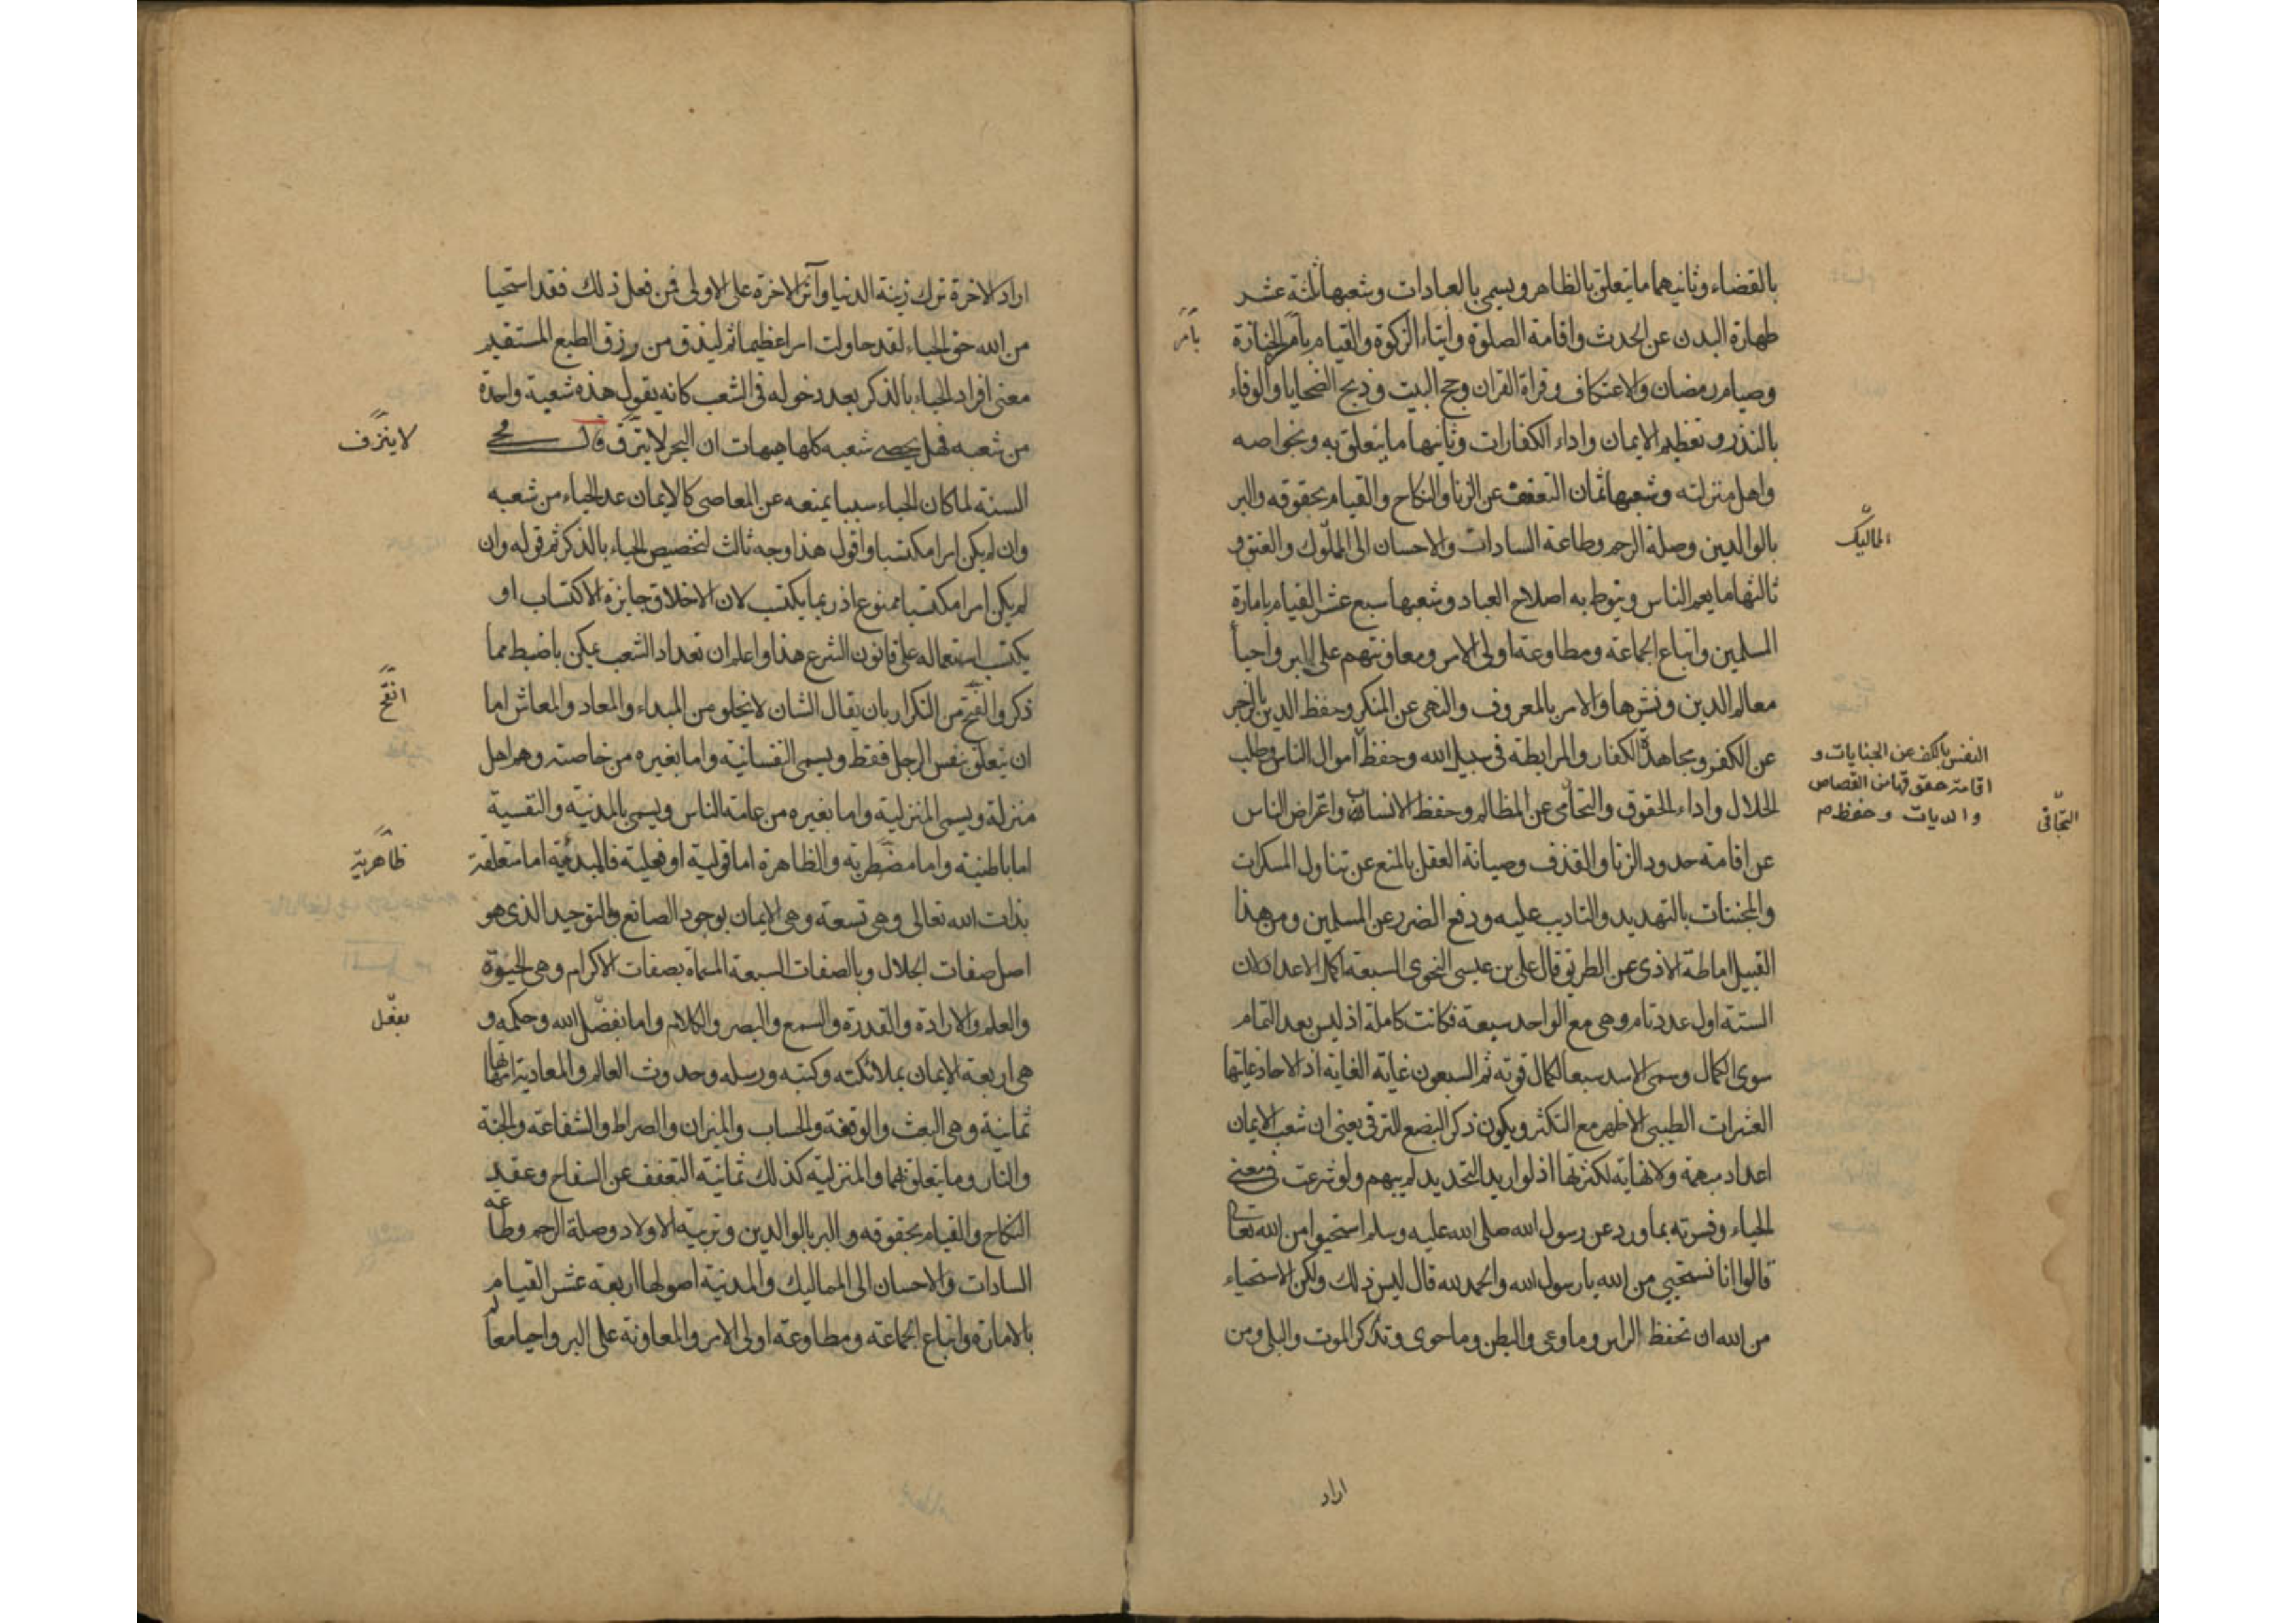 بالقضاء وثانيهما ما يتعلق بالظاهر ويسمى بالعبادات وشعبها ثلثة عشر
طهارة البدن عن الحدث واقامة الصلوة وايتاء الزكوة والقيام بامر الجنازة
بأمر
وصيام رمضان والاعتكاف وقراة القران وحج البيت وذبح الضحايا والوفاء
بالنذر وتعظيم الايمان واداء الكفارات وثانيها ما يتعلق به وبخواصه
واهل منزلته وشعبها ثمان التعفف عن الزنا والنكاح والقيام بحقوقه والبر
بالوالدين وصلة الرحم وطاعة السادات والاحسان الى المملوك والعتق و
المماليك
ثالثها ما يعم الناس وينوط به اصلاح العباد وشعبها سبع عشر القيام بامارة
المسلمين واتباع الجماعة ومطاوعة اولى الامر ومعاونتهم على البر واحيأ
معالم الدين ونشرها والامر بالمعروف والنهى عن المنكر وحفظ الدين بالزجر
عن الكفر ومجاهدة الكفار والمرابطة فى سبيل الله وحفظ اموال الناس وطلب
النفس بالكف عن الجنايات و
اقامة حقوقها من القصاص
والديات وحفظ م
الحلال واداء الحقوق والتحامى عن المظالم وحفظ الانساب واعراض الناس
التجافى
عن اقامة حدود الزنا والقذف وصيانة العقل بالمنع عن تناول المسكرات
والمجننات بالتهديد والتاديب عليه ودفع الضرر عن المسلمين ومن هذا
القبيل اماطة الاذى عن الطريق قال على بن عيسى النحوى السبعة اكمل الاعداد لان
الستة اول عدد تام وهى مع الواحد سبعة فكانت كاملة اذ ليس بعد التمام
سوى الكمال وسمى الاسد سبعا لكمال قوته ثم السبعون غاية الغاية اذ الاحاد غايتها
العشرات الطيبى الاظهر مع التكثر ويكون ذكر البضع للترقى يعنى ان شعب الايمان
اعداد مبهمة ولا نهاية لكثرتها اذ لو اريد التحديد لم يبهم ولو شرعت فى معنى
الحياء وفسرته بما ورد عن رسول الله صلى الله عليه وسلم استحيوا من الله تعالى
قالوا انا نستحيى من الله يا رسول الله والحمد لله قال ليس ذلك ولكن الاستحياء
من الله ان تحفظ الراس وما وعى والبطن وما حوى وتذكر الموت والبلى ومن
اراد
اراد الاخرة ترك زينة الدنيا وآثر الاخرة على الاولى فمن فعل ذلك فقد استحيا
من الله حق الحياء لقد حاولت امرا عظيما ثم ليذق من رزق الطبع المستقيم
معنى افراد الحياء بالذكر بعد دخوله فى الشعب كانه يقول هذه شعبة واحدة
من شعبه فهل يحصى شعبه كلها هيهات ان البحر لا ينزف قال محى
لا ينزف
السنة لما كان الحياء سببا يمنعه عن المعاصى كالايمان عد الحياء من شعبه
وان لم يكن امرا مكتسبا واقول هذا وجه ثالث لتخصيص الحياء بالذكر ثم قوله وان
لم يكن امرا مكتسبا ممنوع اذ ربما يكتسب لان الاخلاق جايزة الاكتساب او
يكتسب استعماله على قانون الشرع هذا واعلم ان تعداد الشعب يمكن باضبط مما
ذكر والفتح من التكرار بان يقال الشان لا يخلو من المبداء والمعاد والمعاش اما
انقح
ان يتعلق بنفس الرجل فقط ويسمى النفسانية واما بغيره من خاصته وهم اهل
منزله ويسمى المنزلية واما بغيره من عامة الناس ويسمى بالمدنية والنفسية
اما باطنية واما مضطرية والظاهرة اما قولية او فعلية فالمبدئية اما متعلقة
ظاهرية
بذات الله تعالى وهى تسعة وهى الايمان بوجود الصانع والتوحيد الذى هو
اصل صفات الجلال وبالصفات السبعة المسماة بصفات الاكرام وهى الحيوة
والعلم والارادة والقدرة والسمع والبصر والكلام واما بفضل الله وحكمه و
بفعل
هى اربعة الايمان بملائكته وكتبه ورسله وحدوث العالم والمعادية امهاتها
ثمانية وهى البعث والوقفة والحساب والميزان والصراط والشفاعة والجنة
والنار وما يتعلق بهما والمنزلية كذلك ثمانية التعفف عن السفاح وعقد
النكاح والقيام بحقوقه والبر بالوالدين وتربية الاولاد وصلة الرحم وطاعة
السادات والاحسان الى المماليك والمدنية اصولها اربعة عشر القيام
بالامارة واتباع الجماعة ومطاوعة اولى الامر والمعاونة على البر واحيا معالم